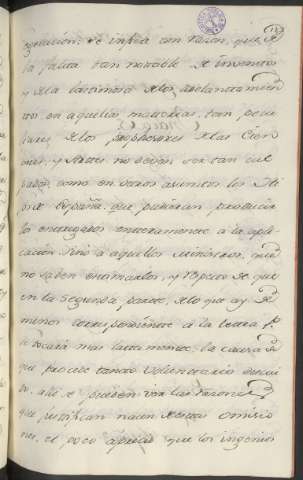 se infiera con razon, que
la falta tan notable de inventos
y de la lastimosa de los adelantamien
tos en aquellas materias, tan pecu
liares de los professores de las Cien
cias, y Artes no deven ser tan cul
pados, como en otros asuntos los
de España que pudieran producir
los entregados enteramente à la apli
cación sino à aquellos ministros, que
no saben estimarlos, y respeto de que
en la segunda parte, de lo que ay de
menos correspondiente à la letra
se tocará mas latamente, la causa de
que procede tanto voluntario descui
do, alli se pueden ver las razones
que justifican nacer de estas omisio
nes, el poco aprecio que los ingenios